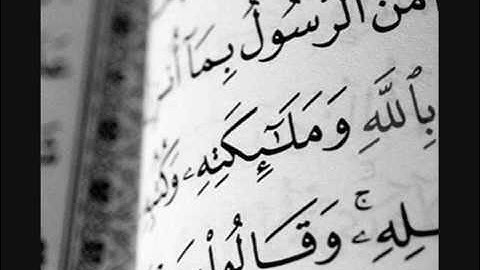 مَنَ ٱلرَّسُولُ بِمَآ أُنـ
بِٱللَّهِ وَمَلَـٰٓئِكَتِهِۦ وَكُتُبِهِ
ـلِهِۦ ۚ وَقَالُوا۟